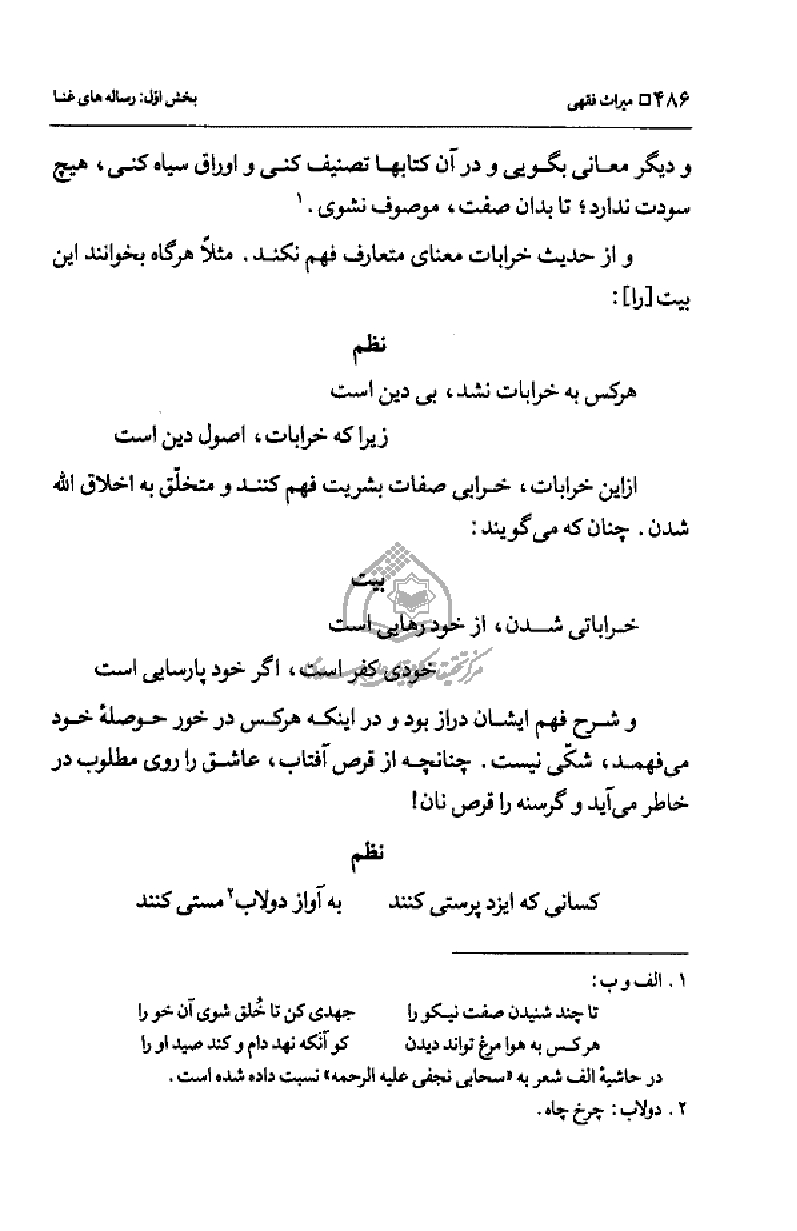 ۴۸۶ □ میراث فقهی
بخش اوّل: رساله های غنا
و دیگر معانی بگویی و در آن کتابها تصنیف کنی و اوراق سیاه کنی، هیچ
سودت ندارد؛ تا بدان صفت، موصوف نشوی.۱
و از حدیث خرابات معنای متعارف فهم نکند. مثلاً هرگاه بخوانند این
بیت [را]:
نظم
هرکس به خرابات نشد، بی دین است
زیرا که خرابات، اصول دین است
ازاین خرابات، خرابی صفات بشریت فهم کنند و متخلّق به اخلاق الله
شدن. چنان که می‌گویند:
بیت
خراباتی شدن، از خود رهایی است
خودی کفر است، اگر خود پارسایی است
و شرح فهم ایشان دراز بود و در اینکه هرکس در خور حوصلهٔ خود
می‌فهمد، شکّی نیست. چنانچه از قرص آفتاب، عاشق را روی مطلوب در
خاطر می‌آید و گرسنه را قرص نان!
نظم
کسانی که ایزد پرستی کنند به آواز دولاب۲ مستی کنند
۱. الف و ب:
تا چند شنیدن صفت نیکو را جهدی کن تا خُلق شوی آن خو را
هرکس به هوا مرغ تواند دیدن کو آنکه نهد دام و کند صید او را
در حاشیهٔ الف شعر به «سحابی نجفی علیه الرحمه» نسبت داده شده است.
۲. دولاب: چرخ چاه.